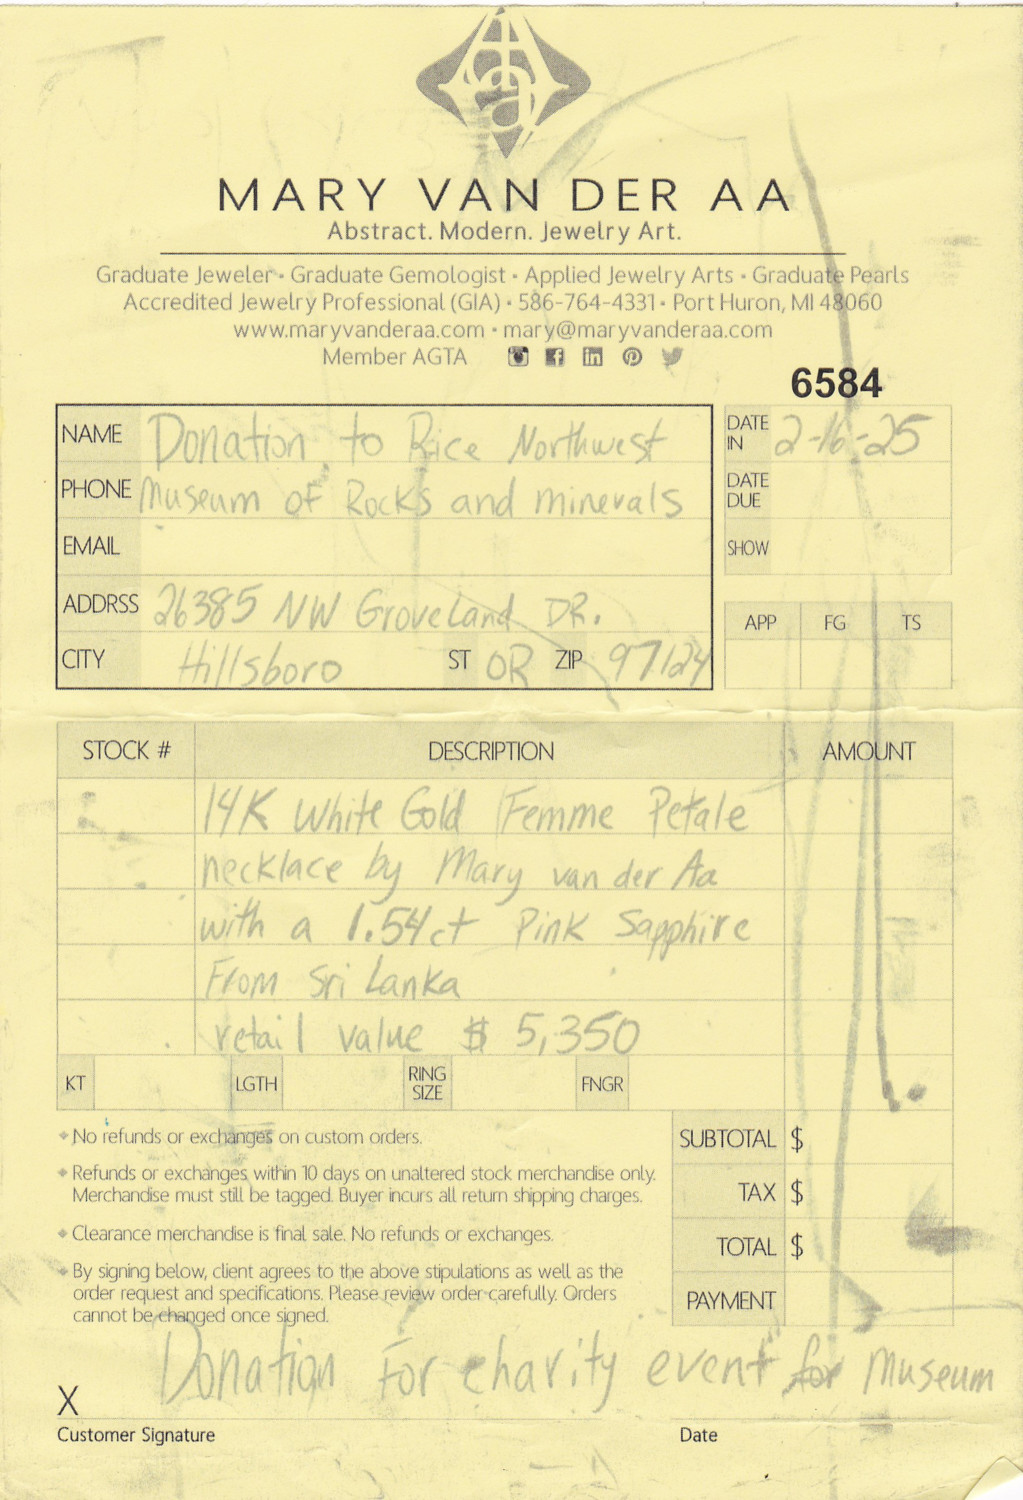 MARY VAN DER AA
Abstract. Modern. Jewelry Art.
Graduate Jeweler • Graduate Gemologist • Applied Jewelry Arts • Graduate Pearls
Accredited Jewelry Professional (GIA) • 586-764-4331 • Port Huron, MI 48060
www.maryvanderaa.com • mary@maryvanderaa.com
Member AGTA
6584
NAME Donation to Rice Northwest
PHONE Museum of Rocks and minerals
EMAIL
ADDRSS 26385 NW Groveland DR.
CITY Hillsboro ST OR ZIP 97124
DATE IN 2-16-25
DATE DUE
SHOW
APP FG TS
STOCK # DESCRIPTION AMOUNT
14K White Gold Femme Petale
necklace by Mary van der Aa
with a 1.54ct Pink Sapphire
From Sri Lanka
retail value $ 5,350
KT LGTH RING SIZE FNGR
• No refunds or exchanges on custom orders.
• Refunds or exchanges within 10 days on unaltered stock merchandise only.
Merchandise must still be tagged. Buyer incurs all return shipping charges.
• Clearance merchandise is final sale. No refunds or exchanges.
• By signing below, client agrees to the above stipulations as well as the
order request and specifications. Please review order carefully. Orders
cannot be changed once signed.
SUBTOTAL $
TAX $
TOTAL $
PAYMENT
Donation For charity event for Museum
X
Customer Signature Date